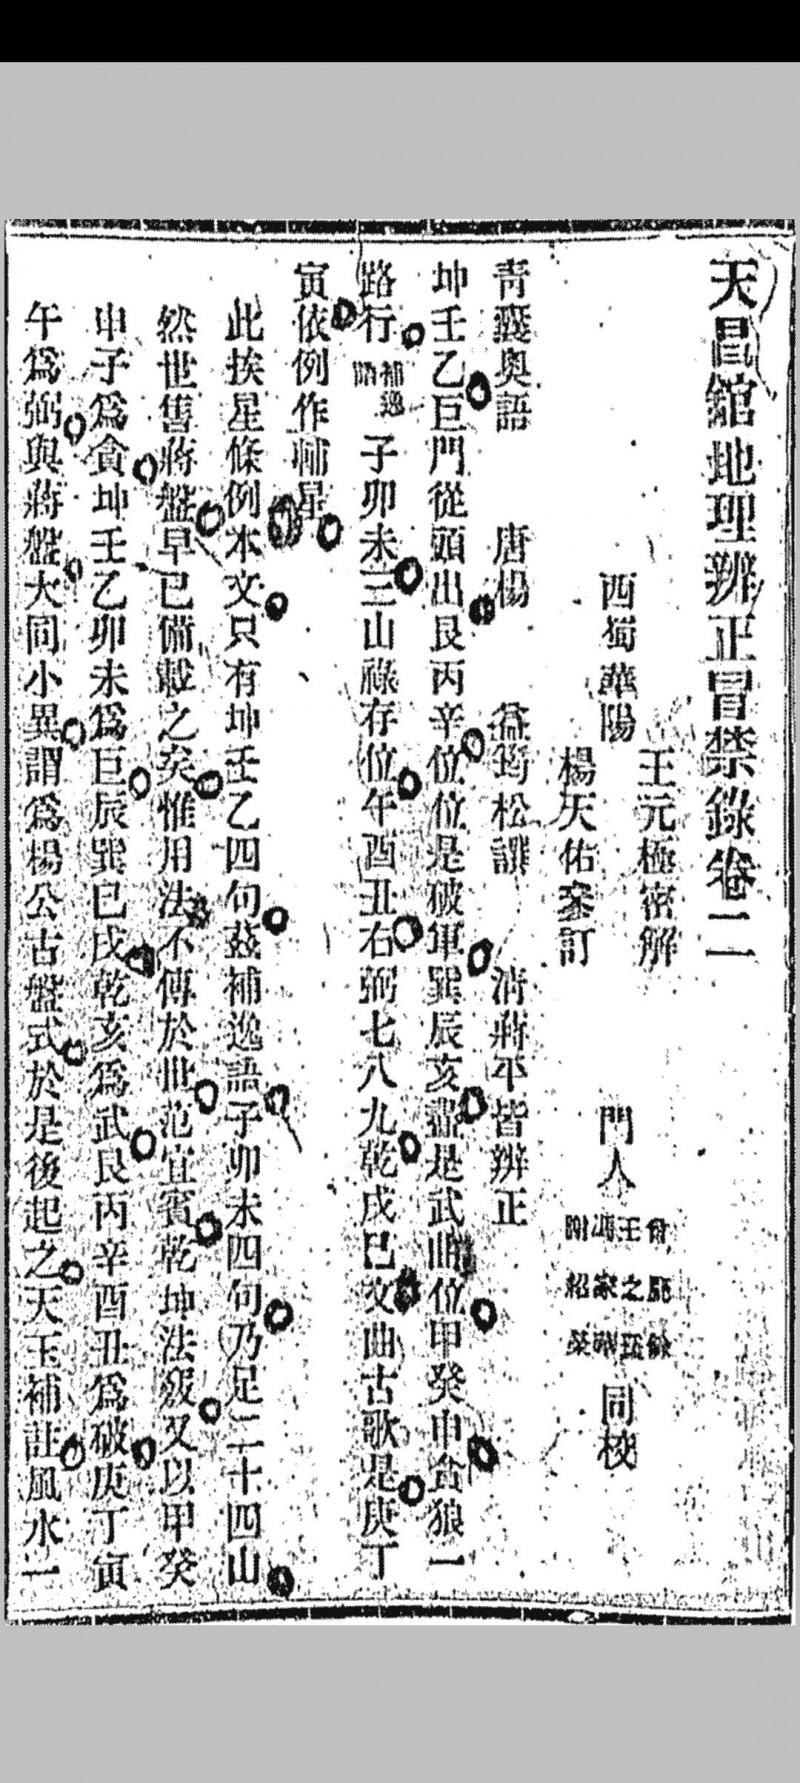 天昌館地理辨正冒禁錄卷二
西蜀華陽
王元極密解
楊天佑參訂
門人
同校
青囊奥語 唐楊 益筠松譔 清蔣平皆辨正
坤壬乙巨門從頭出艮丙辛位位是破軍巽辰亥盡是武曲位甲癸申貪狼一
路行 補逸語 子卯未三山祿存位午酉丑右弼七八九乾戌巳文曲古歌是庚丁
寅依例作輔星
此挨星條例本文只有坤壬乙四句茲補逸語子卯未四句乃足二十四山
然世售蔣盤早已備載之矣惟用法不傳於世范宜賓乾坤法竅又以甲癸
申子為貪坤壬乙卯未為巨辰巽巳戌乾亥為武艮丙辛酉丑為破庚丁寅
午為弼與蔣盤大同小異謂為楊公古盤式於是後起之天玉補註風水一